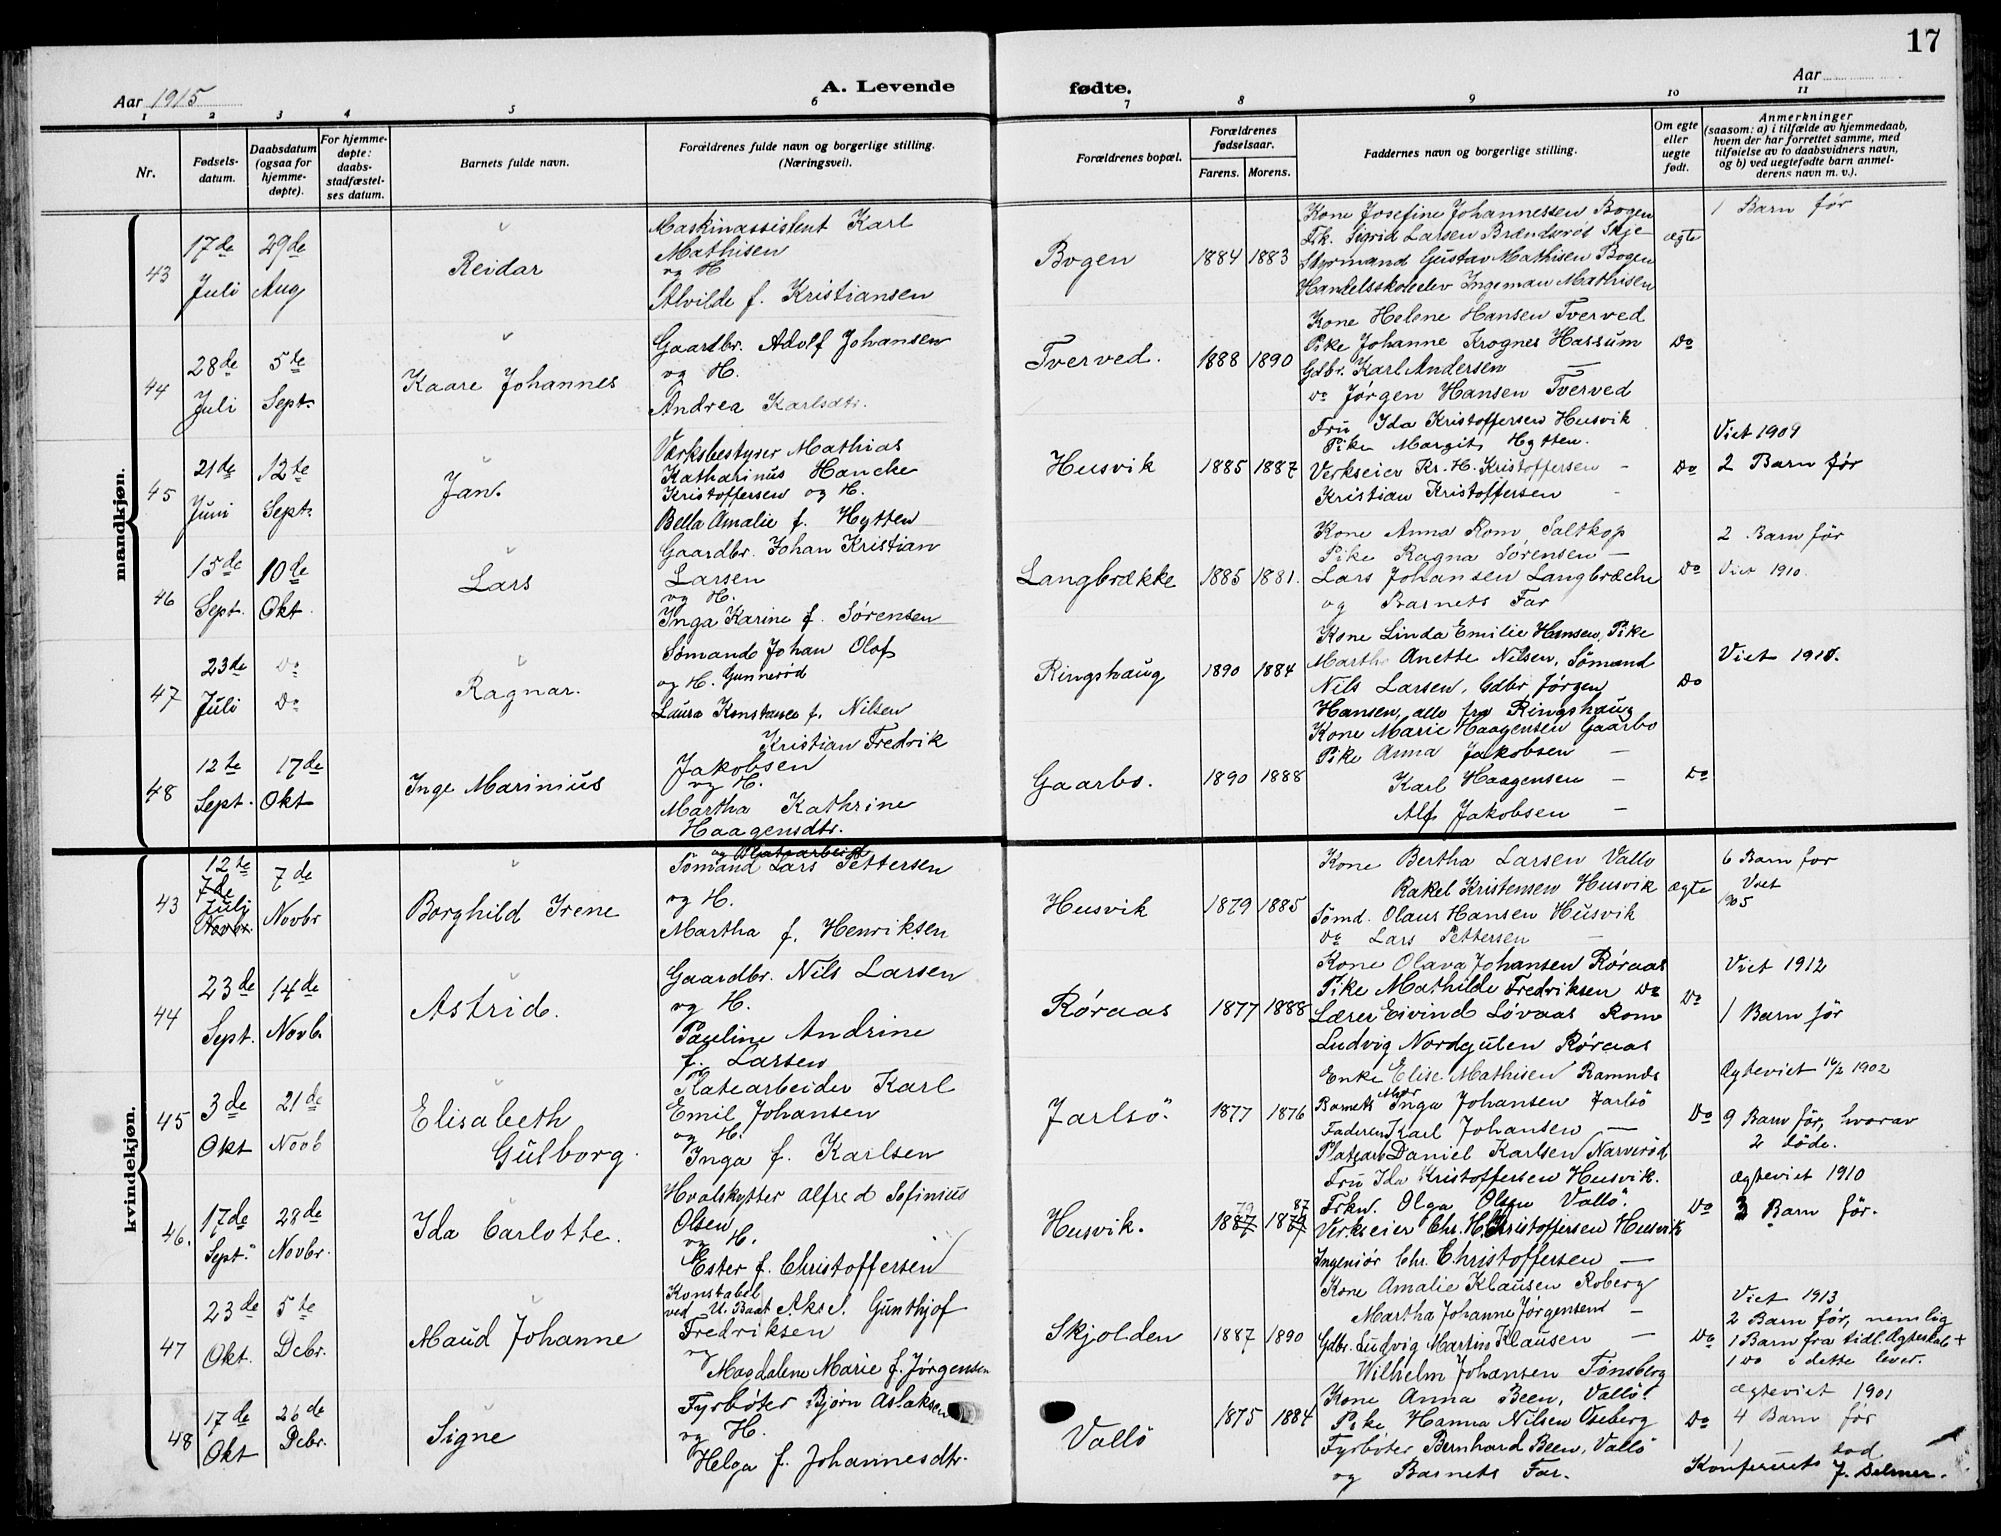 17
Aar 1915
A. Levende fødte.
Aar
1 2 3 4 5 6 7 8 9 10 11
Nr.
Fødsels-
datum.
Daabsdatum
(ogsaa for
hjemme-
døpte).
For hjemme-
døpte:
daabs-
stadfæstel-
ses datum.
Barnets fulde navn.
Forældrenes fulde navn og borgerlige stilling.
(Næringsvei).
Forældrenes bopæl.
Forældrenes
fødselsaar.
Farens. Morens.
Faddernes navn og borgerlige stilling.
Om egte
eller
uegte
født.
Anmerkninger
(saasom: a) i tilfælde av hjemmedaab,
hvem der har forrettet samme, med
tilføielse av to daabsvidners navn,
og b) ved uegtefødte barn anmel-
derens navn m. v.).
mandkjøn.
43
17de
Juli
29de
Aug
Reidar
Maskinassistent Karl
Mathisen
og H
Alvilde f. Kristiansen
Bogen
1884 1883
Kone Josefine Johannessen Bogen
Frk. Sigrid Larsen Brændsrøs Skje
Styrmand Gustav Mathisen Bogen
Handelsskoleelev Ingeman Mathisen
ægte
1 Barn før
44
28de
Juli
5te
Sept.
Kaare Johannes
Gaardbr. Adolf Johansen
og H.
Andrea Karlsdtr.
Tverved.
1888 1890
Kone Helene Hansen Tverved
Pike Johanne Krognes Hassum
Gdbr. Karl Andersen —
do Jørgen Hansen Tverved
Do
45
21de
Juni
12te
Sept.
Jan.
Værksbestyrer Mathias
Katharinus Hanche
Kristoffersen og H.
Bella Amalie f. Hytten
Husvik
1885 1887
Fru Ida Kristoffersen Husvik
Pike Margit Hytten.
Verkseier Kr. H. Kristoffersen -
Kristian Kristoffersen -
Do
Viet 1909
2 Barn før
46
15de
Sept.
10de
Okt.
Lars
Gaardbr. Johan Kristian
Larsen
og H.
Inga Karine f. Sørensen
Langbrække
1885 1881.
Kone Anna Rom, Saltkop
Pike Ragna Sørensen —
Lars Johansen Langbræche
og Barnets Far
Do
2 Barn før
Viet 1910.
47
23de
Juli
Do
Do
Ragnar.
Sømand Johan Olof
og H. Gunnerød
Laura Konstance f. Nilsen
Ringshaug
1890 1884
Kone Linda Emilie Hansen, Pike
Marthe Anette Nilsen, Sømand
Nils Larsen, Gdbr Jørgen
Hansen, alle fra Ringshaug
Do
Viet 1911.
48
12te
Sept.
17de
Okt
Inge Marinius
Kristian Fredrik
Jakobsen
og H.
Martha Kathrine
Haagensdtr.
Gaarbo.
1890 1888
Kone Marie Haagensen Gaarbo
Pike Anna Jakobsen —
Karl Haagensen —
Alf Jakobsen —
Do
kvindekjøn.
43
12te
7de
Juli
Novbr.
7de
Novbr
Borghild Irene
og Platearbeid
Sømand Lars Pettersen
og H.
Martha f. Henriksen
Husvik
1879 1885
Kone Bertha Larsen Vallø
Rakel Kristensen Husvik
Sømd. Olaus Hansen Husvik
do Lars Pettersen —
ægte
6 Barn før
Viet
1905
44
23de
Sept.
14de
Novb.
Astrid.
Gaardbr. Nils Larsen
og H.
Pauline Andrine
f. Larsen
Røraas
1877 1888
Kone Olava Johansen Røraas
Pike Mathilde Fredriksen Do
Lærer Eivind Løvaas Rom
Ludvig Nordgulen Røraas
Do
Viet 1912
1 Barn før
45
3de
Okt
21de
Novb
Elisabeth
Gulborg.
Platearbeider Karl
Emil Johansen
og H.
Inga f. Karlsen
Jarlsö.
1877 1876
Enke Elise Mathisen Ramnes
Barnets Mor Inga Johansen Jarlsö
Faderen Karl Johansen —
Platearb Daniel Karlsen Narverød
Do
Ægteviet 16/2 1902
9 Barn før, hvorav
2 døde.
46.
17de
Sept.
28de
Novbr.
Ida Carlotte.
Hvalskytter Alfred Sofinius
Olsen
og H.
Ester f. Christoffersen
Husvik.
1887 79 1879 87
Fru Ida Kristoffersen Husvik.
Frkn. Olga Olsen Vallö.
Verkseier Chr. H. Christoffersen Husvik
Ingeniør Chr. Christoffersen —
Do
Ægteviet 1910
3 Barn før.
47
23de
Okt.
5te
Debr.
Maud Johanne
Konstabel
ved U. Baat Aksel Gunthjof
Fredriksen
og
Magdalene Marie f. Jørgensen
Skjolden
1887 1890
Kone Amalie Klausen Roberg
Martha Johanne Jørgensen —
Gdbr. Ludvig Martin Klausen —
Wilhelm Johansen Tønsberg
Do
Viet 1913
2 Barn før, nemlig
1 Barn fra tidl. Ægteskab +
1 do i dette lever.
48
17de
Okt
26de
Debr.
Signe
Fyrbøter Bjørn Aslaksen
og H.
Helga f. Johannesdtr.
Vallö
1875 1884
Kone Anna Been, Vallö
Pike Hanna Nilsen Oseberg
Fyrbøter Bernhard Been, Vallö
og Barnets Far.
Do
Ægteviet 1901
4 Barn før
Konfereret